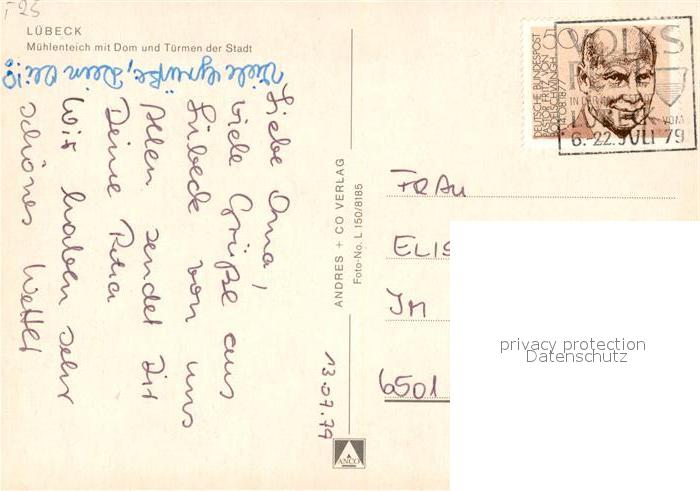 LÜBECK
Mühlenteich mit Dom und Türmen der Stadt
Liebe Oma,
viele Grüße aus
Lübeck von uns
Allen sendet Dir
Deine Petra
Wir haben sehr
schönes Wetter
Viele Grüße, Dein
13.07.79
ANDRES + CO VERLAG
Foto-No. L 150/8185
ANCO
50
DEUTSCHE BUNDESPOST
PASTOR FRIEDRICH
VOLKS
VOM
6.-22. JULI 79
FRAU
ELIS
IM
6501
privacy protection
Datenschutz